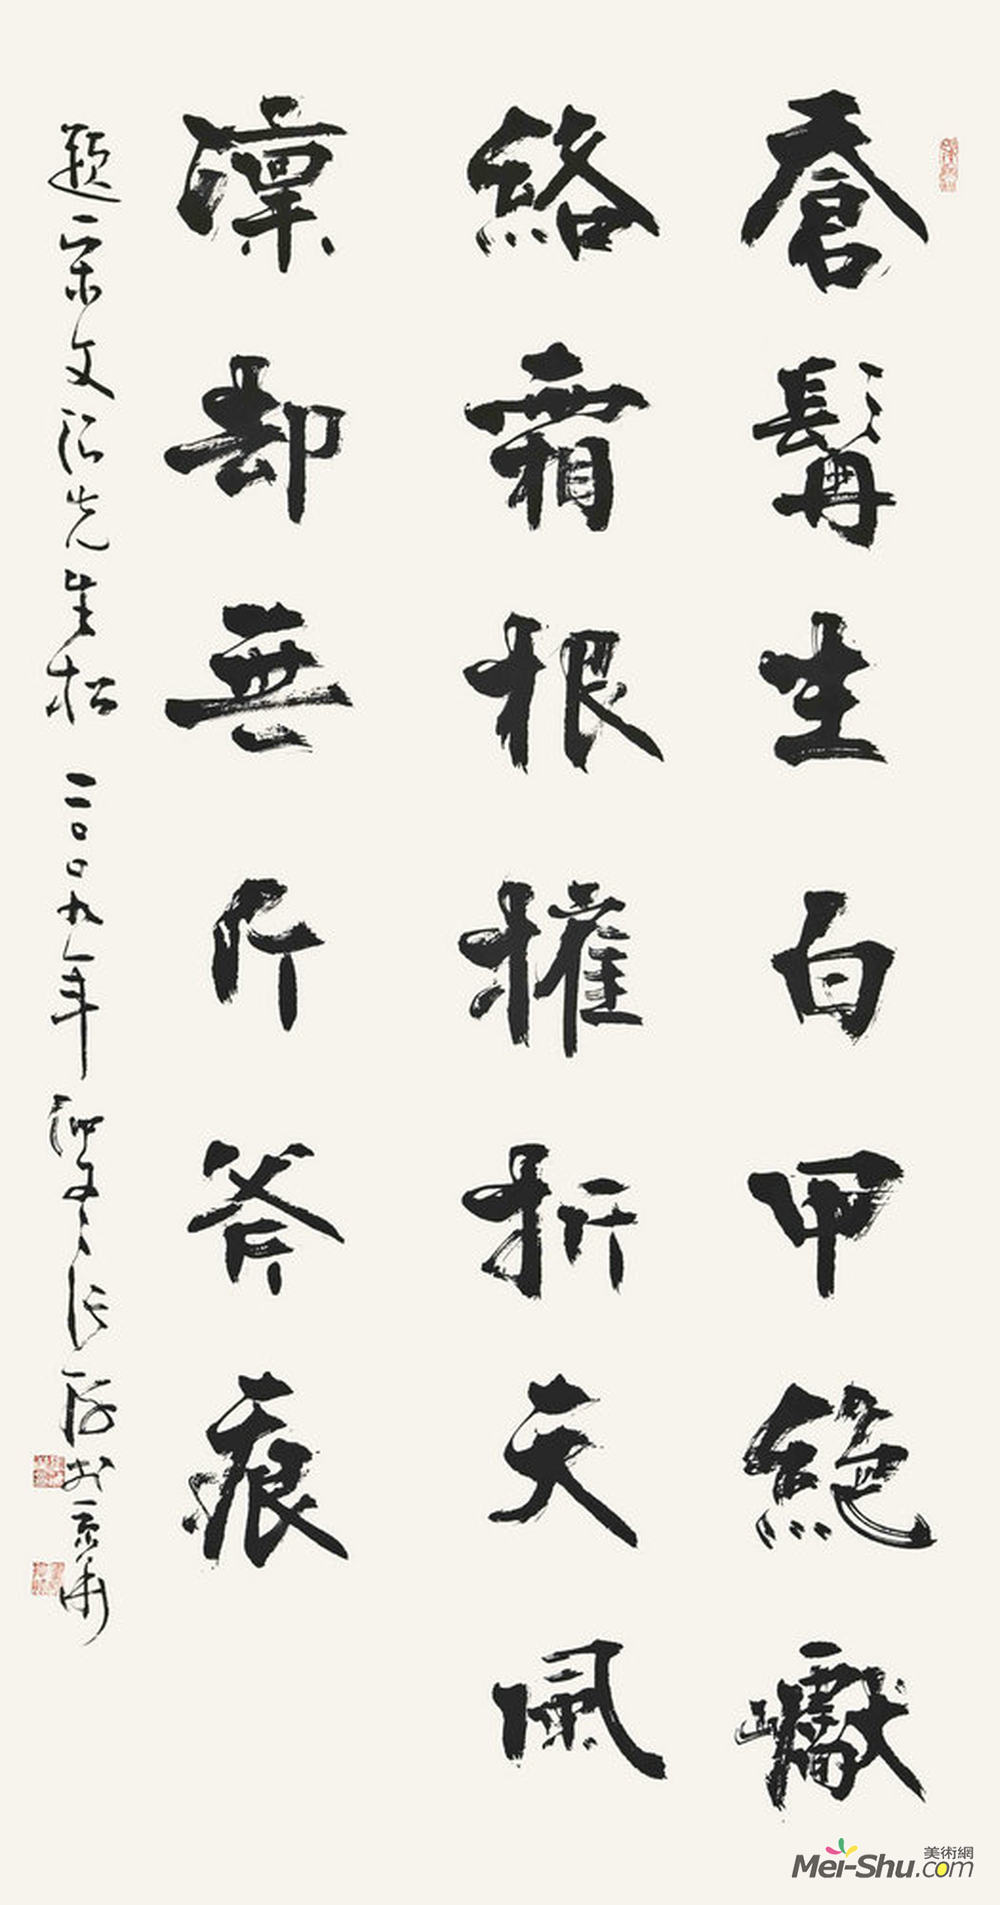 蒼髯生白甲絶巘
絡霜根摧折天風
凛却無斤斧痕
題宋文治先生松 二〇〇九年仲冬 張 於京華
美術網
Mei-Shu.com